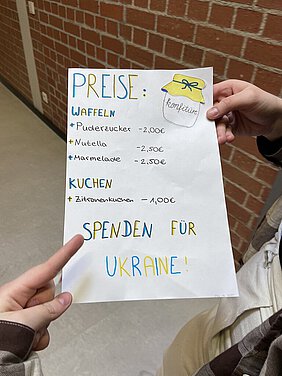 PREISE:
konfitüre
WAFFELN
+ Puderzucker - 2,00€
+ Nutella - 2,50€
+ Marmelade - 2,50€
KUCHEN
+ Zitronenkuchen - 1,00€
SPENDEN FÜR
UKRAINE!